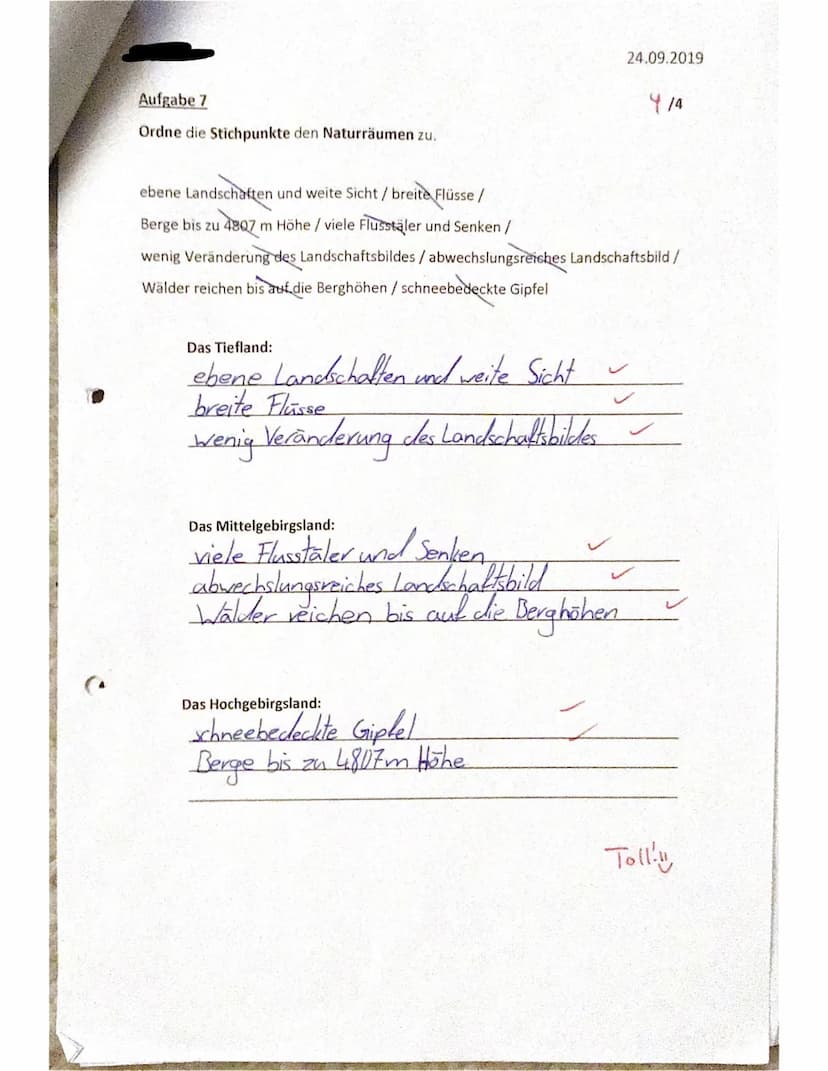 24.09.2019
Aufgabe 7
4/4
Ordne die Stichpunkte den Naturräumen zu.
ebene Landschaften und weite Sicht / breite Flüsse /
Berge bis zu 4807 m Höhe / viele Flusstäler und Senken /
wenig Veränderung des Landschaftsbildes / abwechslungsreiches Landschaftsbild /
Wälder reichen bis auf die Berghöhen / schneebedeckte Gipfel
Das Tiefland:
ebene Landschaften und weite Sicht
breite Flüsse
wenig Veränderung des Landschaftsbildes
Das Mittelgebirgsland:
viele Flusstäler und Senken
abwechslungsreiches Landschaftsbild
Wälder reichen bis auf die Berghöhen
Das Hochgebirgsland:
schneebedeckte Gipfel
Berge bis zu 4807m Höhe
Toll!